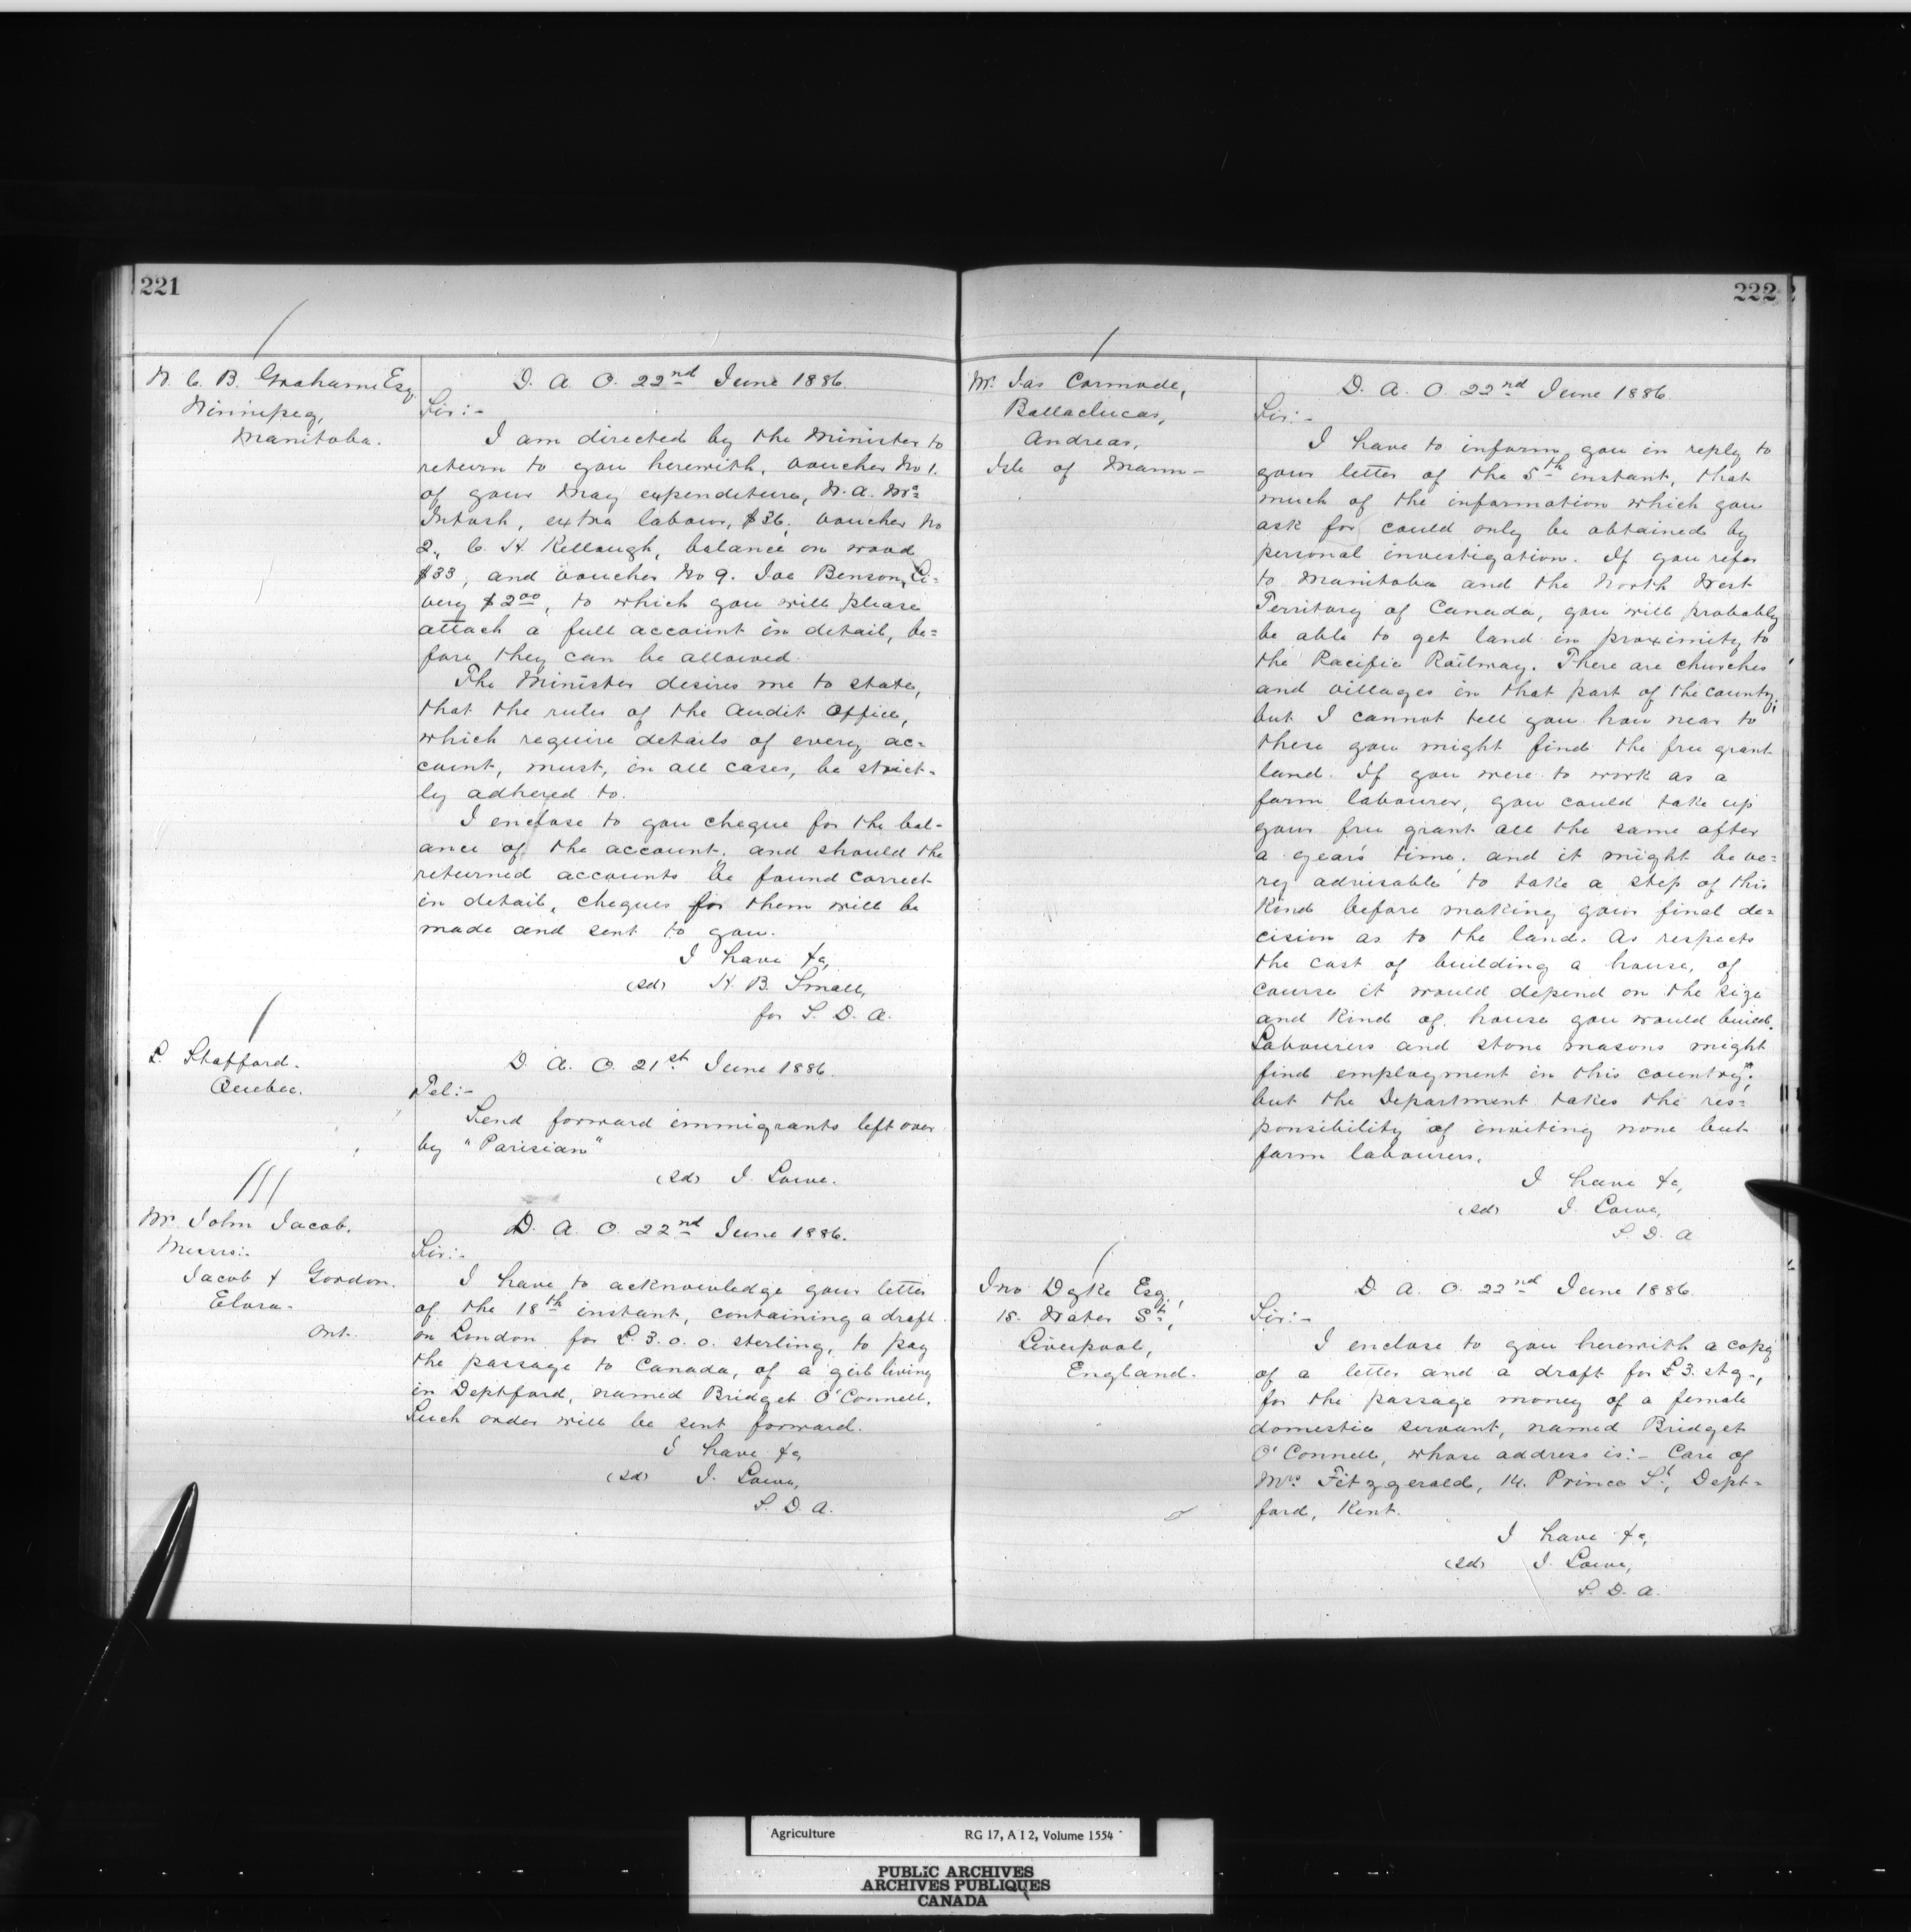 221
W. C. B. Grahame Esq.
Winnipeg,
Manitoba.
D. A. O. 22nd June 1886.
Sir:-
I am directed by the Minister to
return to you herewith, voucher No 1.
of your May expenditure, W. A. Mc=
Intosh, extra labour, $36, voucher No
2, C. H. Kellough, balance on wood
$33, and voucher No 9. Joe Benson, Li=
very $2.00, to which you will please
attach a full account in detail, be=
fore they can be allowed.
The Minister desires me to state,
that the rules of the Audit Office,
which require details of every ac=
count, must, in all cases, be strict-
ly adhered to.
I enclose to you cheque for the bal-
ance of the account, and should the
returned accounts be found correct
in detail, cheques for them will be
made and sent to you.
I have &c,
(sd) H. B. Small,
for S. D. A.
L. Stafford.
Quebec.
D. A. O. 21st June 1886.
Tel:-
Send forward immigrants left over
by "Parisian"
(sd) J. Lowe.
Mr John Jacob.
Messrs:.
Jacob & Gordon.
Elora.
Ont.
D. A. O. 22nd June 1886.
Sir:-
I have to acknowledge your letter
of the 18th instant, containing a draft
on London for £3.0.0. sterling, to pay
the passage to Canada, of a girl living
in Deptford, named Bridget O'Connell.
Such order will be sent forward.
I have &c,
(sd) J. Lowe,
S. D. A.
222
Mr. Jas Cormode,
Ballaclucas,
Andreas,
Isle of Mann-
D. A. O. 22nd June 1886.
Sir:-
I have to inform you in reply to
your letter of the 5th instant, that
much of the information which you
ask for could only be obtained by
personal investigation. If you refer
to Manitoba and the North West
Territory of Canada, you will probably
be able to get land in proximity to
the Pacific Railway. There are churches
and villages in that part of the county;
but I cannot tell you how near to
these you might find the free grant
land. If you were to work as a
farm labourer, you could take up
your free grant all the same after
a year's time, and it might be ve=
ry advisable to take a step of this
kind before making your final de=
cision as to the land. As respects
the cost of building a house, of
course it would depend on the size
and kind of house you would build.
Labourers and stone masons might
find employment in this country;
but the Department takes the res=
ponsibility of inviting none but
farm labourers.
I have &c,
(sd) J. Lowe,
S. D. A
Jno Dyke Esq.,
15. Water St.,
Liverpool,
England.
D. A. O. 22nd June 1886.
Sir:-
I enclose to you herewith a copy
of a letter and a draft for £3. stg.,
for the passage money of a female
domestic servant, named Bridget
O'Connell, whose address is:- Care of
Mrs. Fitzgerald, 14. Prince St., Dept=
ford, Kent.
I have &c,
(sd) J. Lowe,
S. D. A.
Agriculture RG 17, A I 2, Volume 1554
PUBLIC ARCHIVES
ARCHIVES PUBLIQUES
CANADA